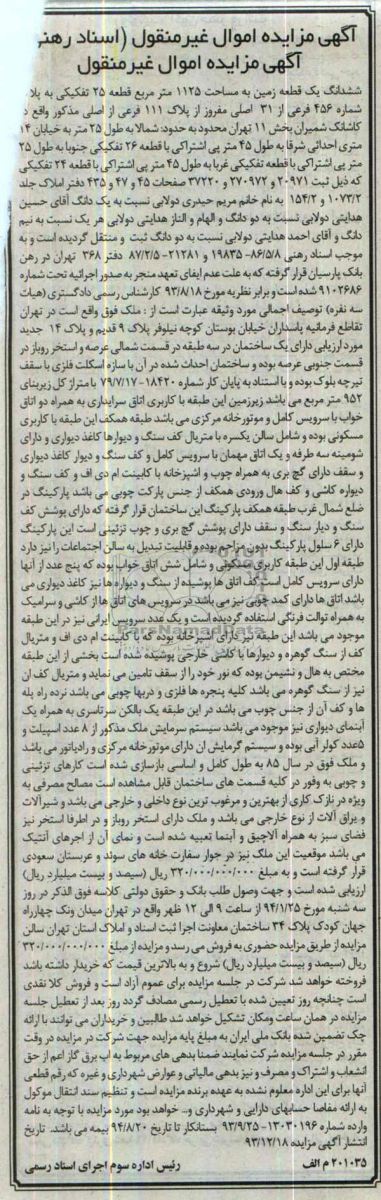 آگهی مزایده اموال غیرمنقول (اسناد رهنی
آگهی مزایده اموال غیرمنقول
ششدانگ یک قطعه زمین به مساحت ۱۱۲۵ متر مربع قطعه ۲۵ تفکیکی به پلاک
شماره ۴۵۶ فرعی از ۳۱ اصلی مفروز از پلاک ۱۱۱ فرعی از اصلی مذکور واقع در
کاشانک شمیران بخش ۱۱ تهران محدود به حدود: شمالا به طول ۲۵ متر به خیابان ۱۴
متری احداثی شرقا به طول ۴۵ متر پی اشتراکی با قطعه ۲۶ تفکیکی جنوبا به طول ۲۵
متر پی اشتراکی با قطعه تفکیکی غربا به طول ۴۵ متر پی اشتراکی با قطعه ۲۴ تفکیکی
که ذیل ثبت ۲۰۹۷۱ و ۲۷۰۹۷۲ و ۳۷۲۲۰ صفحات ۴۵ و ۴۷ و ۴۳۵ دفتر املاک جلد
۱۰۷۳/۲ و ۱۵۴/۲ به نام خانم مریم حیدری دولابی نسبت به یک دانگ آقای حسین
هدایتی دولابی نسبت به دو دانگ و الهام و الناز هدایتی دولابی هر یک نسبت به نیم
دانگ و آقای احمد هدایتی دولابی نسبت به دو دانگ ثبت و منتقل گردیده است و به
موجب اسناد رهنی ۸۶/۵/۸- ۱۹۸۳۵ و ۲۱۲۸۱- ۸۷/۲/۵ دفتر ۳۶۸ تهران در رهن
بانک پارسیان قرار گرفته که به علت عدم ایفای تعهد منجر به صدور اجرائیه تحت شماره
۹۱۰۲۶۸۶ شده است و برابر نظریه مورخ ۹۳/۸/۱۸ کارشناس رسمی دادگستری (هیات
سه نفره) توصیف اجمالی مورد وثیقه عبارت است از : ملک فوق واقع است در تهران
تقاطع فرمانیه پاسداران خیابان بوستان کوچه نیلوفر پلاک ۹ قدیم و پلاک ۱۴ جدید
مورد ارزیابی دارای یک ساختمان در سه طبقه در قسمت شمالی عرصه و استخر روباز در
قسمت جنوبی عرصه بوده و ساختمان احداث شده در آن با سازه اسکلت فلزی با سقف
تیرچه بلوک بوده و با استناد به پایان کار شماره ۱۸۴۲۰- ۷۹/۷/۱۷ با متراژ کل زیربنای
۹۵۲ متر مربع می باشد زیرزمین این طبقه با کاربری اتاق سرایداری به همراه دو اتاق
خواب با سرویس کامل و موتورخانه مرکزی می باشد طبقه همکف این طبقه با کاربری
مسکونی بوده و شامل سالن یکسره با متریال کف سنگ و دیوارها کاغذ دیواری و دارای
شومینه سه طرفه و یک اتاق مهمان با سرویس کامل و کف سنگ و دیوار کاغذ دیواری
و سقف دارای گچ بری به همراه چوب و اشپزخانه با کابینت ام دی اف و کف سنگ و
دیواره کاشی و کف هال ورودی همکف از جنس پارکت چوبی می باشد پارکینگ در
ضلع شمال غرب طبقه همکف پارکینگ این ساختمان قرار گرفته که دارای پوشش کف
سنگ و دیار سنگ و سقف دارای پوشش گچ بری و چوب تزئینی است این پارکینگ
دارای ۶ سلول پارکینگ بدون مزاحم بوده و قابلیت تبدیل به سالن اجتماعات را نیز دارد
طبقه اول این طبقه کاربری مسکونی و شامل شش اتاق خواب بوده که پنج عدد از آنها
دارای سرویس کامل است کف اتاق ها پوشیده از سنگ و دیواره ها نیز کاغذ دیواری می
باشد اتاق ها دارای کمد چوبی نیز می باشد در سرویس های اتاق ها از کاشی و سرامیک
به همراه توالت فرنگی استفاده گردیده است و یک عدد سرویس ایرانی نیز در این طبقه
موجود می باشد این طبقه نیز دارای آشپزخانه بوده که با کابینت ام دی اف و متریال
کف از سنگ گوهره و دیوارها با کاشی خارجی پوشیده شده است بخشی از این طبقه
مختص به هال و نشیمن بوده که نور خود را از سقف تامین می نماید و متریال کف ان
نیز از سنگ گوهره می باشد کلیه پنجره ها فلزی و دربها چوبی می باشد نرده راه پله
ها و کف آن از جنس چوب می باشد در این طبقه یک بالکن سرتاسری به همراه یک
آبنمای دیواری نیز موجود می باشد سیستم سرمایش ملک مذکور از ۸ عدد اسپیلت و
۵عدد کولر آبی بوده و سیستم گرمایش ان دارای موتورخانه مرکزی و رادیاتور می باشد
و ملک فوق در سال ۸۵ به طول کامل و اساسی بازسازی شده است کارهای تزئینی
و چوبی به وفور در کلیه قسمت های ساختمان قابل مشاهده است مصالح مصرفی به
ویژه در نازک کاری از بهترین و مرغوب ترین نوع داخلی و خارجی می باشد و شیرآلات
و یراق آلات از نوع خارجی می باشد و ملک دارای استخر روباز و در اطراف استخر نیز
فضای سبز به همراه آلاچیق و آبنما تعبیه شده است و نمای آن از اجرهای آنتیک
می باشد موقعیت این ملک نیز در جوار سفارت خانه های سوئد و عربستان سعودی
قرار گرفته است و به مبلغ ۳۲۰/۰۰۰/۰۰۰/۰۰۰ ریال (سیصد و بیست میلیارد ریال)
ارزیابی شده است و جهت وصول طلب بانک و حقوق دولتی کلاسه فوق الذکر در روز
سه شنبه مورخ ۹۴/۱/۲۵ از ساعت ۹ الی ۱۲ ظهر واقع در تهران میدان ونک چهارراه
جهان کودک پلاک ۳۴ ساختمان معاونت اجرا ثبت اسناد و املاک استان تهران سالن
مزایده از طریق مزایده حضوری به فروش می رسد و مزایده از مبلغ ۳۲۰/۰۰۰/۰۰۰/۰۰۰
ریال (سیصد و بیست میلیارد ریال) شروع و به بالاترین قیمت که خریدار داشته باشد
فروخته خواهد شد شرکت در جلسه مزایده برای عموم آزاد است و فروش کلا نقدی
است چنانچه روز تعیین شده با تعطیل رسمی مصادف گردد روز بعد از تعطیل جلسه
مزایده در همان ساعت ومکان تشکیل خواهد شد طالبین و خریداران می توانند با ارائه
چک تضمین شده بانک ملی ایران به مبلغ پایه مزایده جهت شرکت در مزایده در وقت
مقرر در جلسه مزایده شرکت نمایند ضمنا بدهی های مربوط به اب برق گاز اعم از حق
انشعاب و اشتراک و مصرف و نیز بدهی مالیاتی و عوارض شهرداری و غیره که رقم قطعی
آنها برای این اداره معلوم نشده به عهده برنده مزایده است و تنظیم سند انتقال موکول
به ارائه مفاصا حسابهای دارایی و شهرداری و.. خواهد بود مورد مزایده با توجه به نامه
وارده شماره ۱۳۰۳۰۱۹۶- ۹۳/۹/۲۵ بستانکار تا تاریخ ۹۴/۸/۲۰ بیمه می باشد. تاریخ
انتشار آگهی مزایده ۹۳/۱۲/۱۸
۲۰۱۰۳۵ م الف رئیس اداره سوم اجرای اسناد رسمی